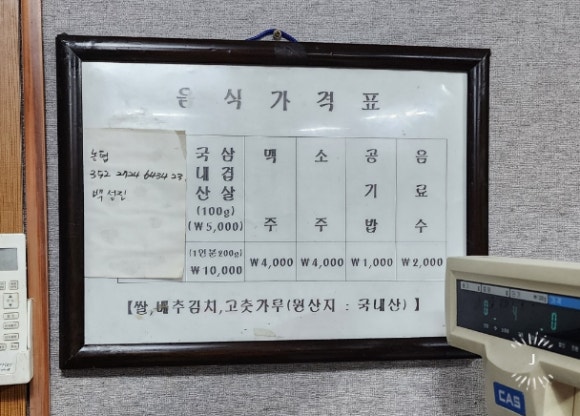 음식가격표
농협
352 2724 6434 23.
백성진
국내산 삼겹살
(100g)
(₩5,000)
맥주
소주
공기밥
음료수
(1인분200g)
₩10,000
₩4,000
₩4,000
₩1,000
₩2,000
【쌀,배추김치,고춧가루(원산지 : 국내산) 】
CAS